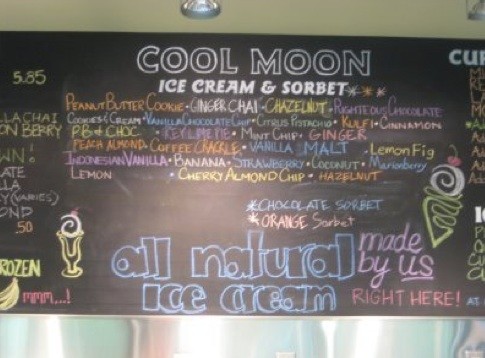 COOL MOON
ICE CREAM & SORBET***
PEANUT BUTTER COOKIE • GINGER CHAI • CHAZELNUT • RIGHTEOUS CHOCOLATE
COOKIES & CREAM • VANILLA CHOCOLATE CHIP • CITRUS PISTACHIO • KULFI • CINNAMON
P.B. & CHOC. • KEY LIME PIE • MINT CHIP • GINGER
PEACH ALMOND • COFFEE CRACKLE • VANILLA MALT • LEMON FIG
INDONESIAN VANILLA • BANANA • STRAWBERRY • COCONUT • Marionberry
LEMON • CHERRY ALMOND CHIP • HAZELNUT
*CHOCOLATE SORBET
*ORANGE Sorbet
all natural
ice cream
made
by us
RIGHT HERE!
5.85
LLA CHAI
ON BERRY
WN!
ATE
LLA
(VARIES)
OND
.50
ROZEN
mmm...!
CUP
IC
AT